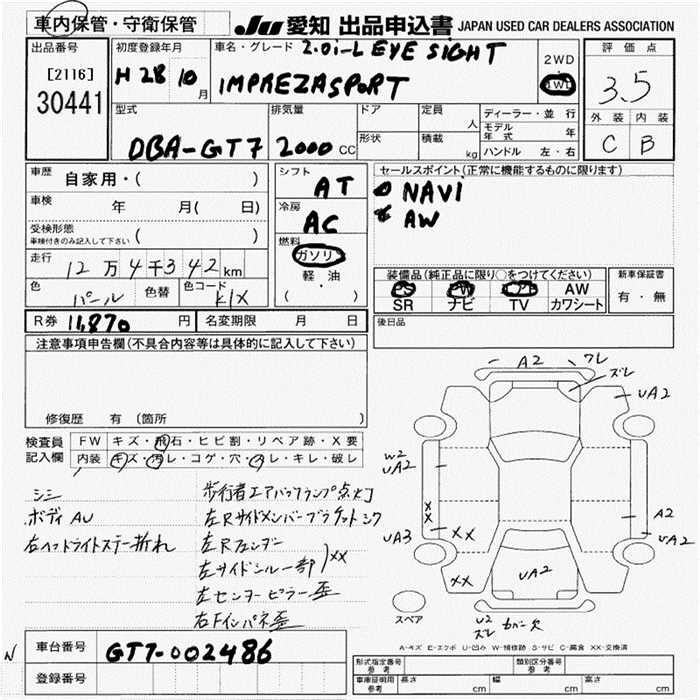 車内保管・守衛保管
JU 愛知 出品申込書 JAPAN USED CAR DEALERS ASSOCIATION
出品番号
[2116]
30441
初度登録年月
H 28 10 月
車名・グレード 2.0i-L EYE SIGHT
IMPREZA SPORT
2WD
4WD
評価点
3.5
外装 内装
C B
型式
DBA-GT7
排気量
2000 CC
ドア
形状
定員 人
積載 kg
ディーラー・並行
モデル年式 年
ハンドル 左・右
車歴 自家用・( )
車検 年 月( 日)
受検形態
車検付きのみ記入して下さい ( )
走行
12万4千342km
色 パール 色替 色コード K1X
シフト
AT
冷房
AC
燃料
ガソリン
軽・油
( )
セールスポイント(正常に機能するものに限ります)
NAVi
AW
装備品(純正品に限り○をつけてください)
PS PW エアB AW
SR ナビ TV カワシート
新車保証書
有・無
後日品
R券 11,870 円 名変期限 月 日
注意事項申告欄(不具合内容等は具体的に記入して下さい)
修復歴 有 〔箇所 〕
検査員記入欄
FW キズ・飛石・ヒビ割・リペア跡・X要
内装 キズ・汚レ・コゲ・穴・スレ・キレ・破レ
シミ
ボディ AU
右ヘッドライトステー折れ
歩行者エアバッグランプ点灯
左Rサイドメンバーブラケットシワ
左Rフェンダー
左サイドシル一部 XX
左センターピラー歪
右Fインパネ歪
A2 ワレ
ズレ
UA2
W2
UA2
XX
UA3
XX
XX
A2
UA2
UA2
U2
ズレ カバー欠
スペア
A-キズ E-エクボ U-凹み W-補修跡 S-サビ C-腐食 XX-交換済
N
車台番号 GT7-002486
登録番号
形式指定番号 参考
類別区分番号 参考
車庫証明用 参考 長さ cm 幅 cm 高さ cm